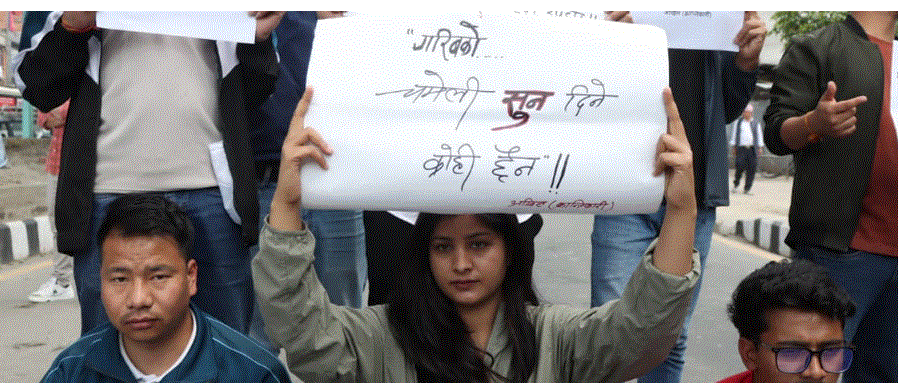 "गरिबको.....
चमेली सुन दिने
कोही छैन"!!